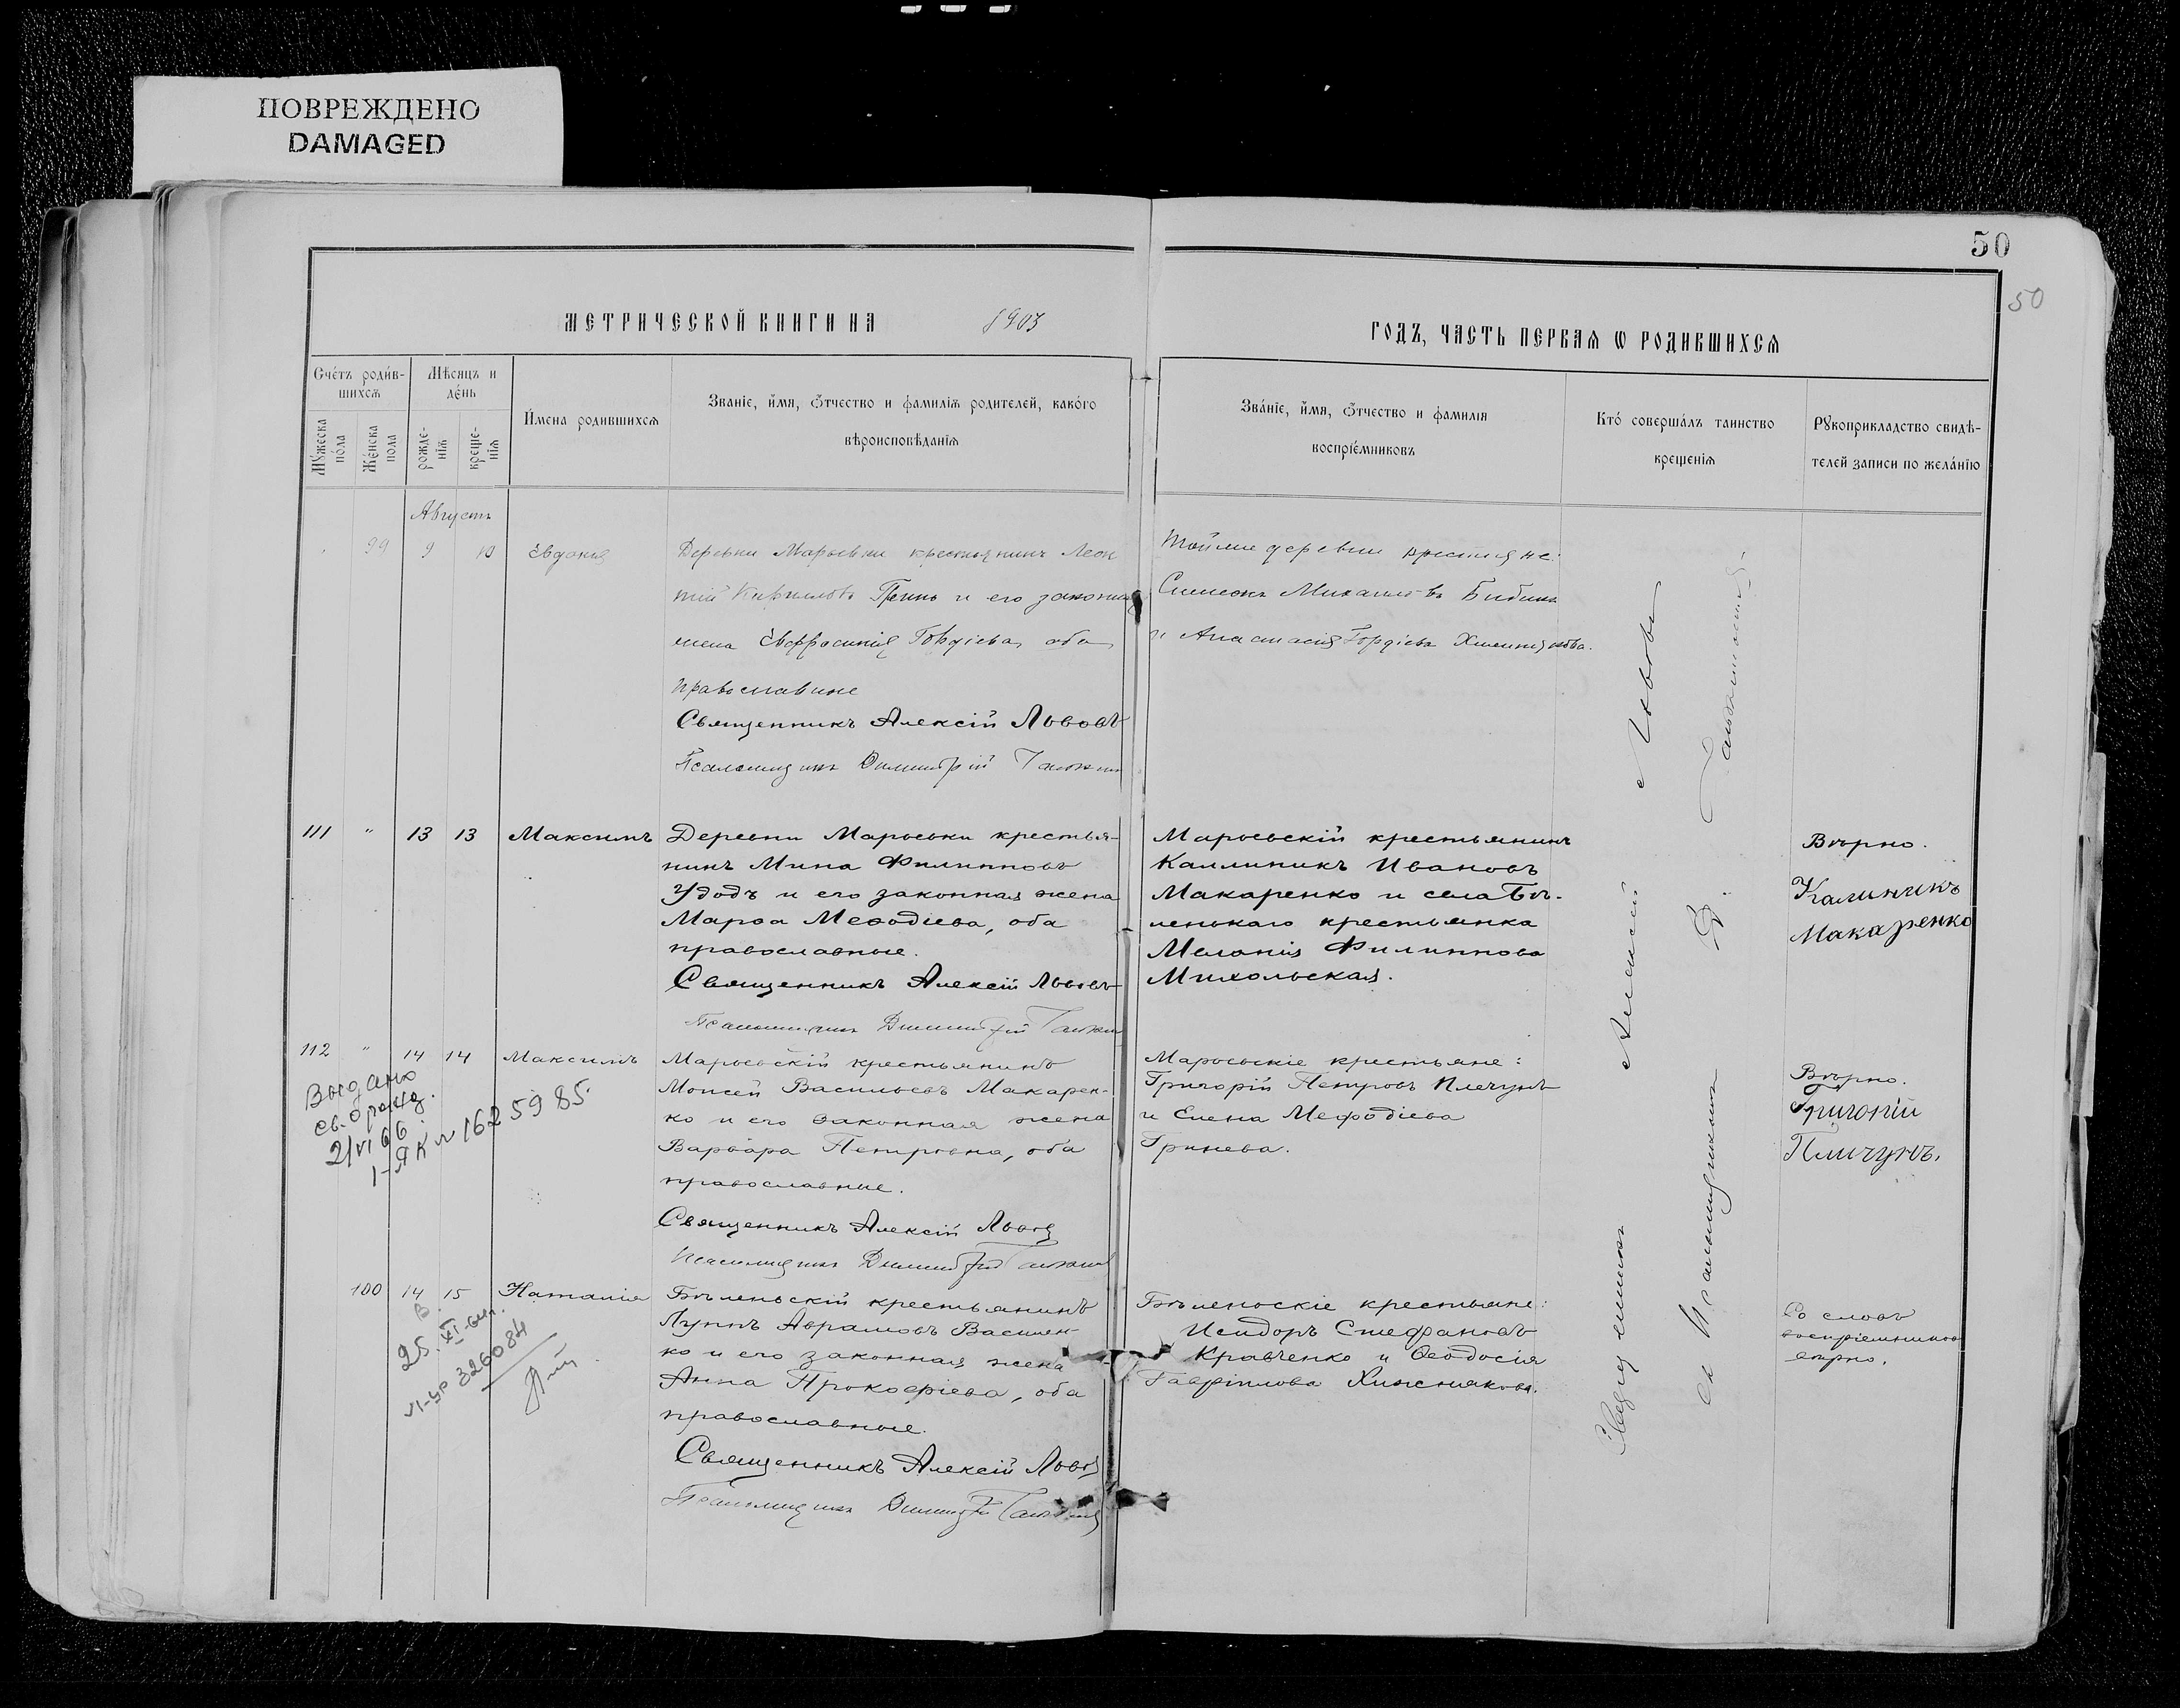 ПОВРЕЖДЕНО
DAMAGED
50
50
МЕТРИЧЕСКОЙ КНИГИ НА 1903
ГОДЪ, ЧАСТЬ ПЕРВАѦ Ѡ РОДИВШИХСѦ
Счетъ родив-
шихсѧ
Мѣсяцъ и
день
Мужеска
пола
Женска
пола
рожде-
нїѧ
креще-
нїѧ
Имена родившихсѧ
Званїе, имя, ѿчество и фамилїѧ родителей, какого
вѣроисповѣданїѧ
Званїе, имя, ѿчество и фамилїѧ
воспрїемниковъ
Кто совершалъ таинство
крещенїѧ
Рукоприкладство свидѣ-
телей записи по желанїю
Августъ
99 9 10 Евдокія
Деревни Марьевки крестьянинъ Леон
тій Кириловъ Гринь и его законная
жена Евфросинія Гордіева, оба
православные
Священникъ Алексій Львовъ
Псаломщикъ Димитрій
Тойже деревни крестьяне:
Симеонъ Михаиловъ
и Анастасія Гордіева
111 " 13 13 Максимъ
Деревни Марьевки крестья-
нинъ Мина Филипповъ
Удодъ и его законная жена
Марѳа Меѳодіева, оба
православные.
Священникъ Алексій Львовъ
Псаломщикъ Димитрій
Марьевскій крестьянинъ
Каллиникъ Ивановъ
Макаренко и села Бѣ-
ленькаго крестьянка
Меланія Филиппова
Михольская.
Вѣрно.
Калиникъ
Макаренко
112 " 14 14 Максимъ
Выдано
св. о рожд.
2/VI 66
I-ЯК № 1625985
Марьевскій крестьянинъ
Моисей Васильевъ Макарен-
ко и его законная жена
Варвара Петровна, оба
православные.
Священникъ Алексій Львовъ
Псаломщикъ Димитрій
Марьевскіе крестьяне:
Григорій Петровъ Плечунъ
и Елена Мефодіева
Гринева.
Вѣрно.
Григорій
Пличунъ.
100 14 15 Наталія
326084
Бѣленьскій крестьянинъ
Луппъ Аврамовъ Василен-
ко и его законная жена
Анна Прокофіева, оба
православные.
Священникъ Алексій Львовъ
Псаломщикъ Димитрій
Бѣленьскіе крестьяне:
Исидоръ Стефановъ
Кравченко и Ѳеодосія
Гавріилова Хижнякова.
Со словъ
воспріемниковъ
вѣрно.
Священникъ Алексій Львовъ
съ Псаломщикомъ Д.